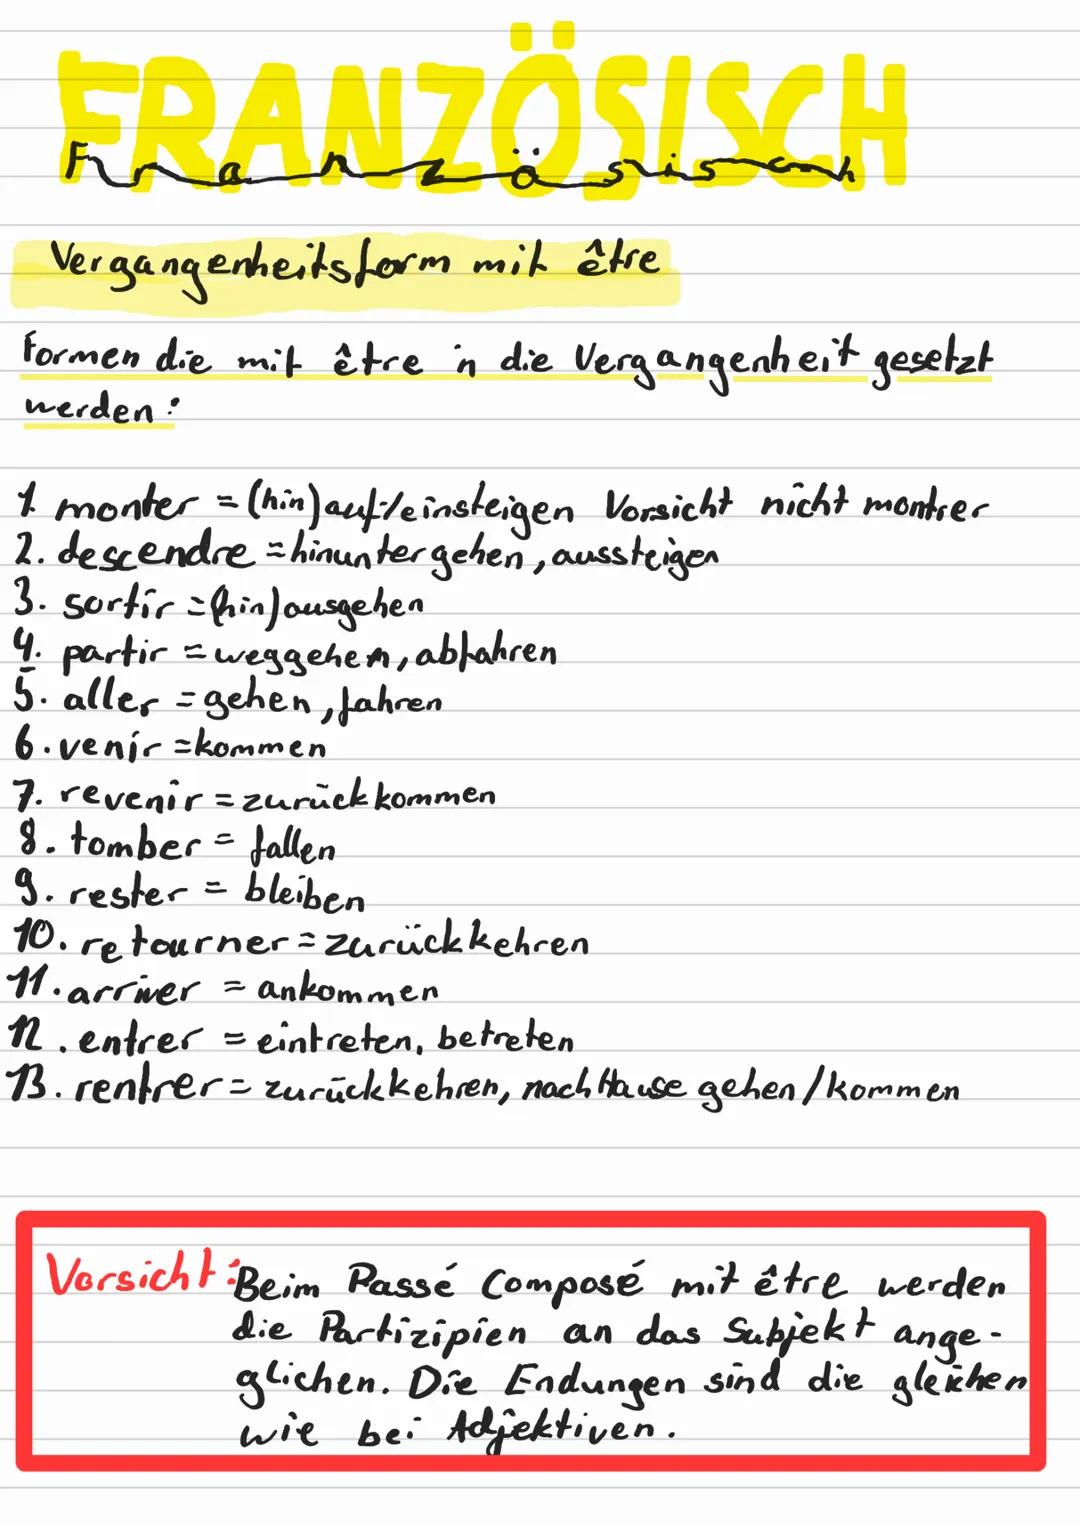 FRANZÖSISCH
Französisch
Vergangenheitsform mit être
Formen die mit être in die Vergangenheit gesetzt
werden:
1. monter = (hin)auf-/einsteigen Vorsicht nicht montrer
2. descendre = hinuntergehen, aussteigen
3. sortir = (hin)ausgehen
4. partir = weggehen, abfahren
5. aller = gehen, fahren
6. venir = kommen
7. revenir = zurückkommen
8. tomber = fallen
9. rester = bleiben
10. retourner = zurückkehren
11. arriver = ankommen
12. entrer = eintreten, betreten
13. rentrer = zurückkehren, nach Hause gehen/kommen
Vorsicht: Beim Passé Composé mit être werden
die Partizipien an das Subjekt ange-
glichen. Die Endungen sind die gleichen
wie bei Adjektiven.